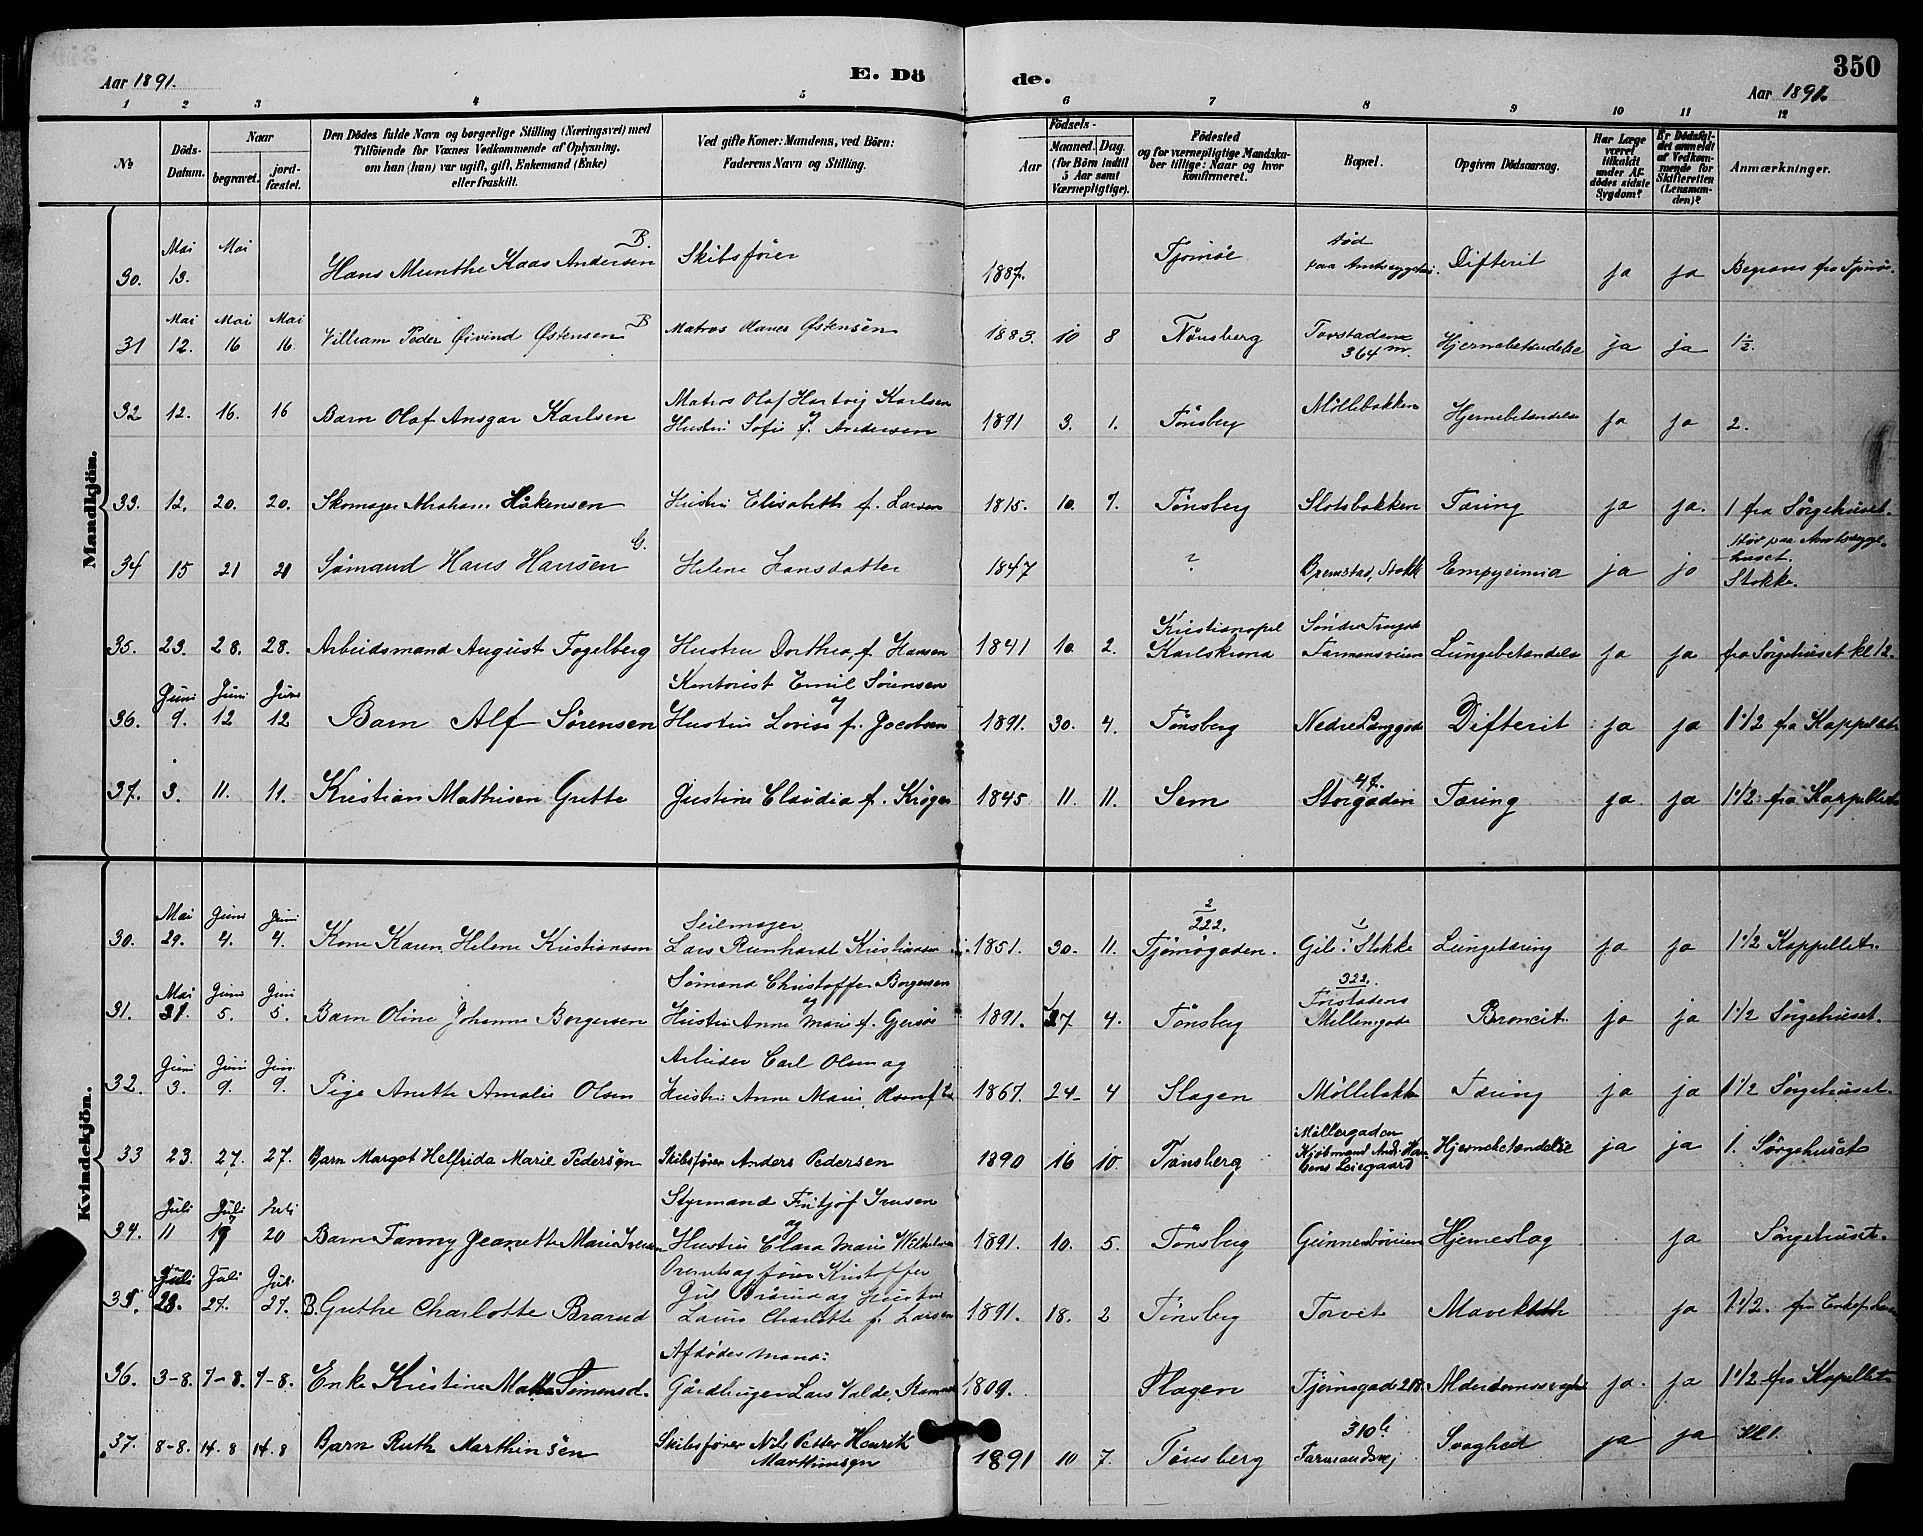 350
Aar 1891.
E. Dö
de.
Aar 1891.
1 2 3 4 5 6 7 8 9 10 11 12
No
Döds-
Datum.
Naar
begravet.
jord-
fæstet.
Den Dödes fulde Navn og borgerlige Stilling (Næringsvei) med
Tilföiende for Voxnes Vedkommende af Oplysning,
om han (hun) var ugift, gift, Enkemand (Enke)
eller fraskilt.
Ved gifte Koner: Mandens, ved Börn:
Faderens Navn og Stilling.
Aar
Födsels-
Maaned. Dag.
(for Börn indtil
5 Aar samt
Værnepligtige).
Födested
og for værnepligtige Mandska-
ber tillige: Naar og hvor
konfirmeret.
Bopæl.
Opgiven Dödsaarsag.
Har Læge
været
tilkaldt
under Af-
dödes sidste
Sygdom?
Er Dödsfal-
det anmeldt
af Vedkom-
mende for
Skifteretten
(Lensman-
den)?
Anmærkninger.
Mandkjön.
Mai Mai B. död
30. 13. Hans Munthe Kaas Andersen Skibsfører 1887. Tjømøe paa Amtssygehus. Difterit ja ja Begraves fra Tjømøe.
Mai Mai Mai B
31 12. 16 16. William Peder Øivind Østensen Matros Hanes Østensen 1883. 10 8 Tønsberg 364 Hjernebetændelse ja ja 1½
Matros Olaf Hartvig Karlsen
32 12. 16. 16 Barn Olaf Ansgar Karlsen Hustru Sofie f. Andersen 1891 3. 1. Tønsberg Möllebakken Hjernebetændelse ja ja 2.
33. 12. 20. 20. Skomager Abraham Håkensen Hustru Elisabeth f. Larsen 1815. 10. 7. Tønsberg Slotsbakken Tæring ja ja. 1 fra Sörgehuset.
34 15 21 21 Sømand Hans Hansen G. Helene Hansdatter 1847 ? Stokk Empyeimia ja ja død paa Amtssyge-
huset.
Stokke.
Kristianopel
35. 23. 28. 28. Arbeidsmand August Fogelberg Hustru Dorthea f. Hansen 1841 10. 2. Karlskrona Farmansveien Lungebetændelse ja ja fra Sørgehuset kl 12.
Juni Juni Juni Kontorist Emil Sørensen
og
36. 9. 12 12. Barn Alf Sörensen Hustru Lovise f. Jacobsen 1891. 30. 4. Tønsberg Nedre Langgade Difterit ja ja 1 1/2 fra Kappellet
47.
37. 3. 11. 11. Kristian Mathisen Grette Justine Claudia f. Krøger 1845 11. 11. Sem Storgaden Tæring ja ja 1 1/2 fra Kappellet
Kvindekjön.
Mai Juni Juni Seilmager 2
222. i
30. 29. 4. 4. Kone Karen Helene Kristiansen Lars Reinhardt Kristiansen 1851. 30. 11. Tjömögaden. Stokke Lungetæring ja ja 1 1/2 Kappellet.
Mai Juni Juni Sømand Christoffer Borgersen 322.
og
31. 31. 5. 5. Barn Oline Johanne Borgersen Hustru Anne Marie f. 1891. 27 4. Tønsberg Møllergade Broncit. ja ja 1 1/2 Sörgehuset.
Juni Juni Juni Arbeider Carl Olsen og
32. 3. 9. 9. Pige Anette Amalie Olsen Hustru Anne Marie 1867. 24 4 Slagen Möllebakk Tæring ja ja 1 1/2 Sörgehuset.
Møllergaden
33 23. 27. 27. Barn Margot Helfrida Marie Pedersen Skibsfører Anders Pedersen 1890 16 10. Tønsberg Kjöbmand And. Han-
sens Leiegaard Hjernebetændelse ja ja 1. Sørgehuset
Juli Juli Juli Styrmand Fritjof Iversen
og
34. 11 17 20 Barn Fanny Jeanette Marie Iversen Hustru Clara Marie Wilhelmsen 1891. 10. 5. Tønsberg Hjerneslag ja Sörgehuset.
Juli Juli Juli Kristoffer
og Hustru
35. 23. 27. 27. B. Grethe Charlotte Brarud Laura Charlotte f. Larsen 1891. 18. 2 Tönsberg Torvet ja 1 1/2.
Afdødes Mand:
36. 3-8. 7-8. 7-8. Enke Kristine Simensd. Gårdbruger Lars 1809. Slagen ja. ja 1 1/2 fra Kapellet
310 b
37. 8-8. 14.8 14.8 Barn Ruth Marthinsen Skibsfører Nils Petter Henrik
Marthinsen 1891 10 7. Tønsberg Farmandsvej Svaghed ja ja Kl 1.